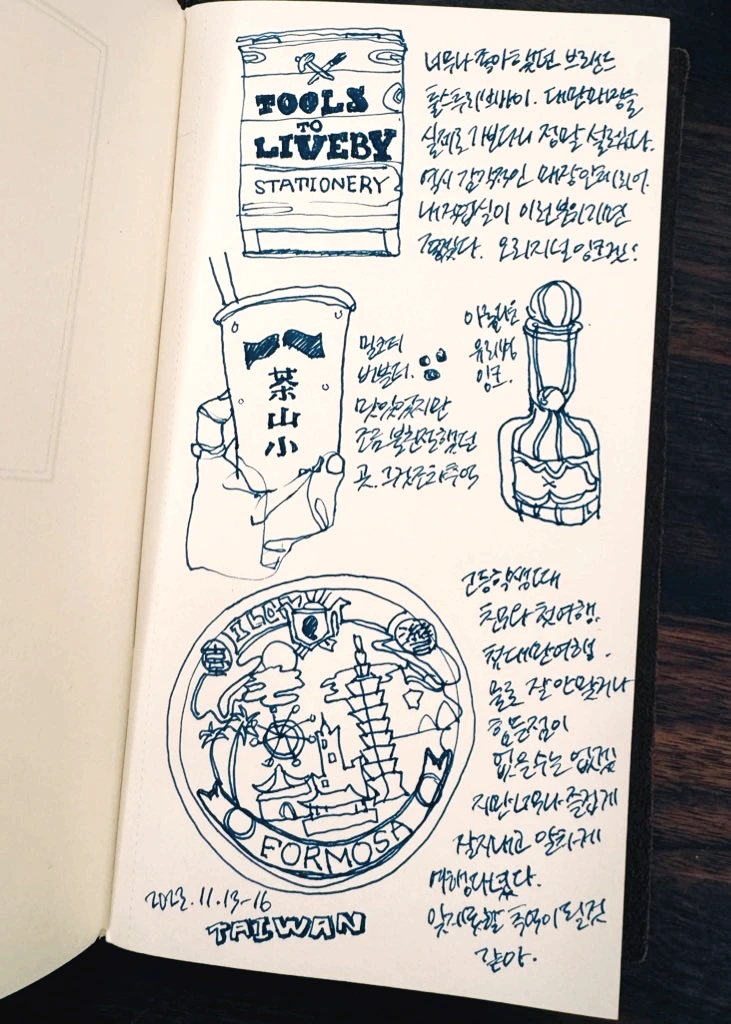 TOOLS
TO
LIVEBY
STATIONERY
너무나 좋아했던 브랜드
툴스투리브바이. 대만매장을
실제로 가보다니 정말 설레었다.
역시 감각적인 매장인테리어.
내 작업실이 이런분위기면
좋겠다. 오리지널 잉크겟!
茶
山
小
밀크티
버블티.
맛있었지만
조금 불친절했던
곳. 그것조차 추억
유리병
잉크.
FORMOSA
고등학생때
친구와 첫여행.
첫대만여행.
물로 잘 안맞거나
힘든점이
없을수는 없겠
지만 너무나 즐겁게
잘지내고 알차게
여행다녔다.
잊지못할 추억이 될것
같아.
2023.11.13-16
TAIWAN